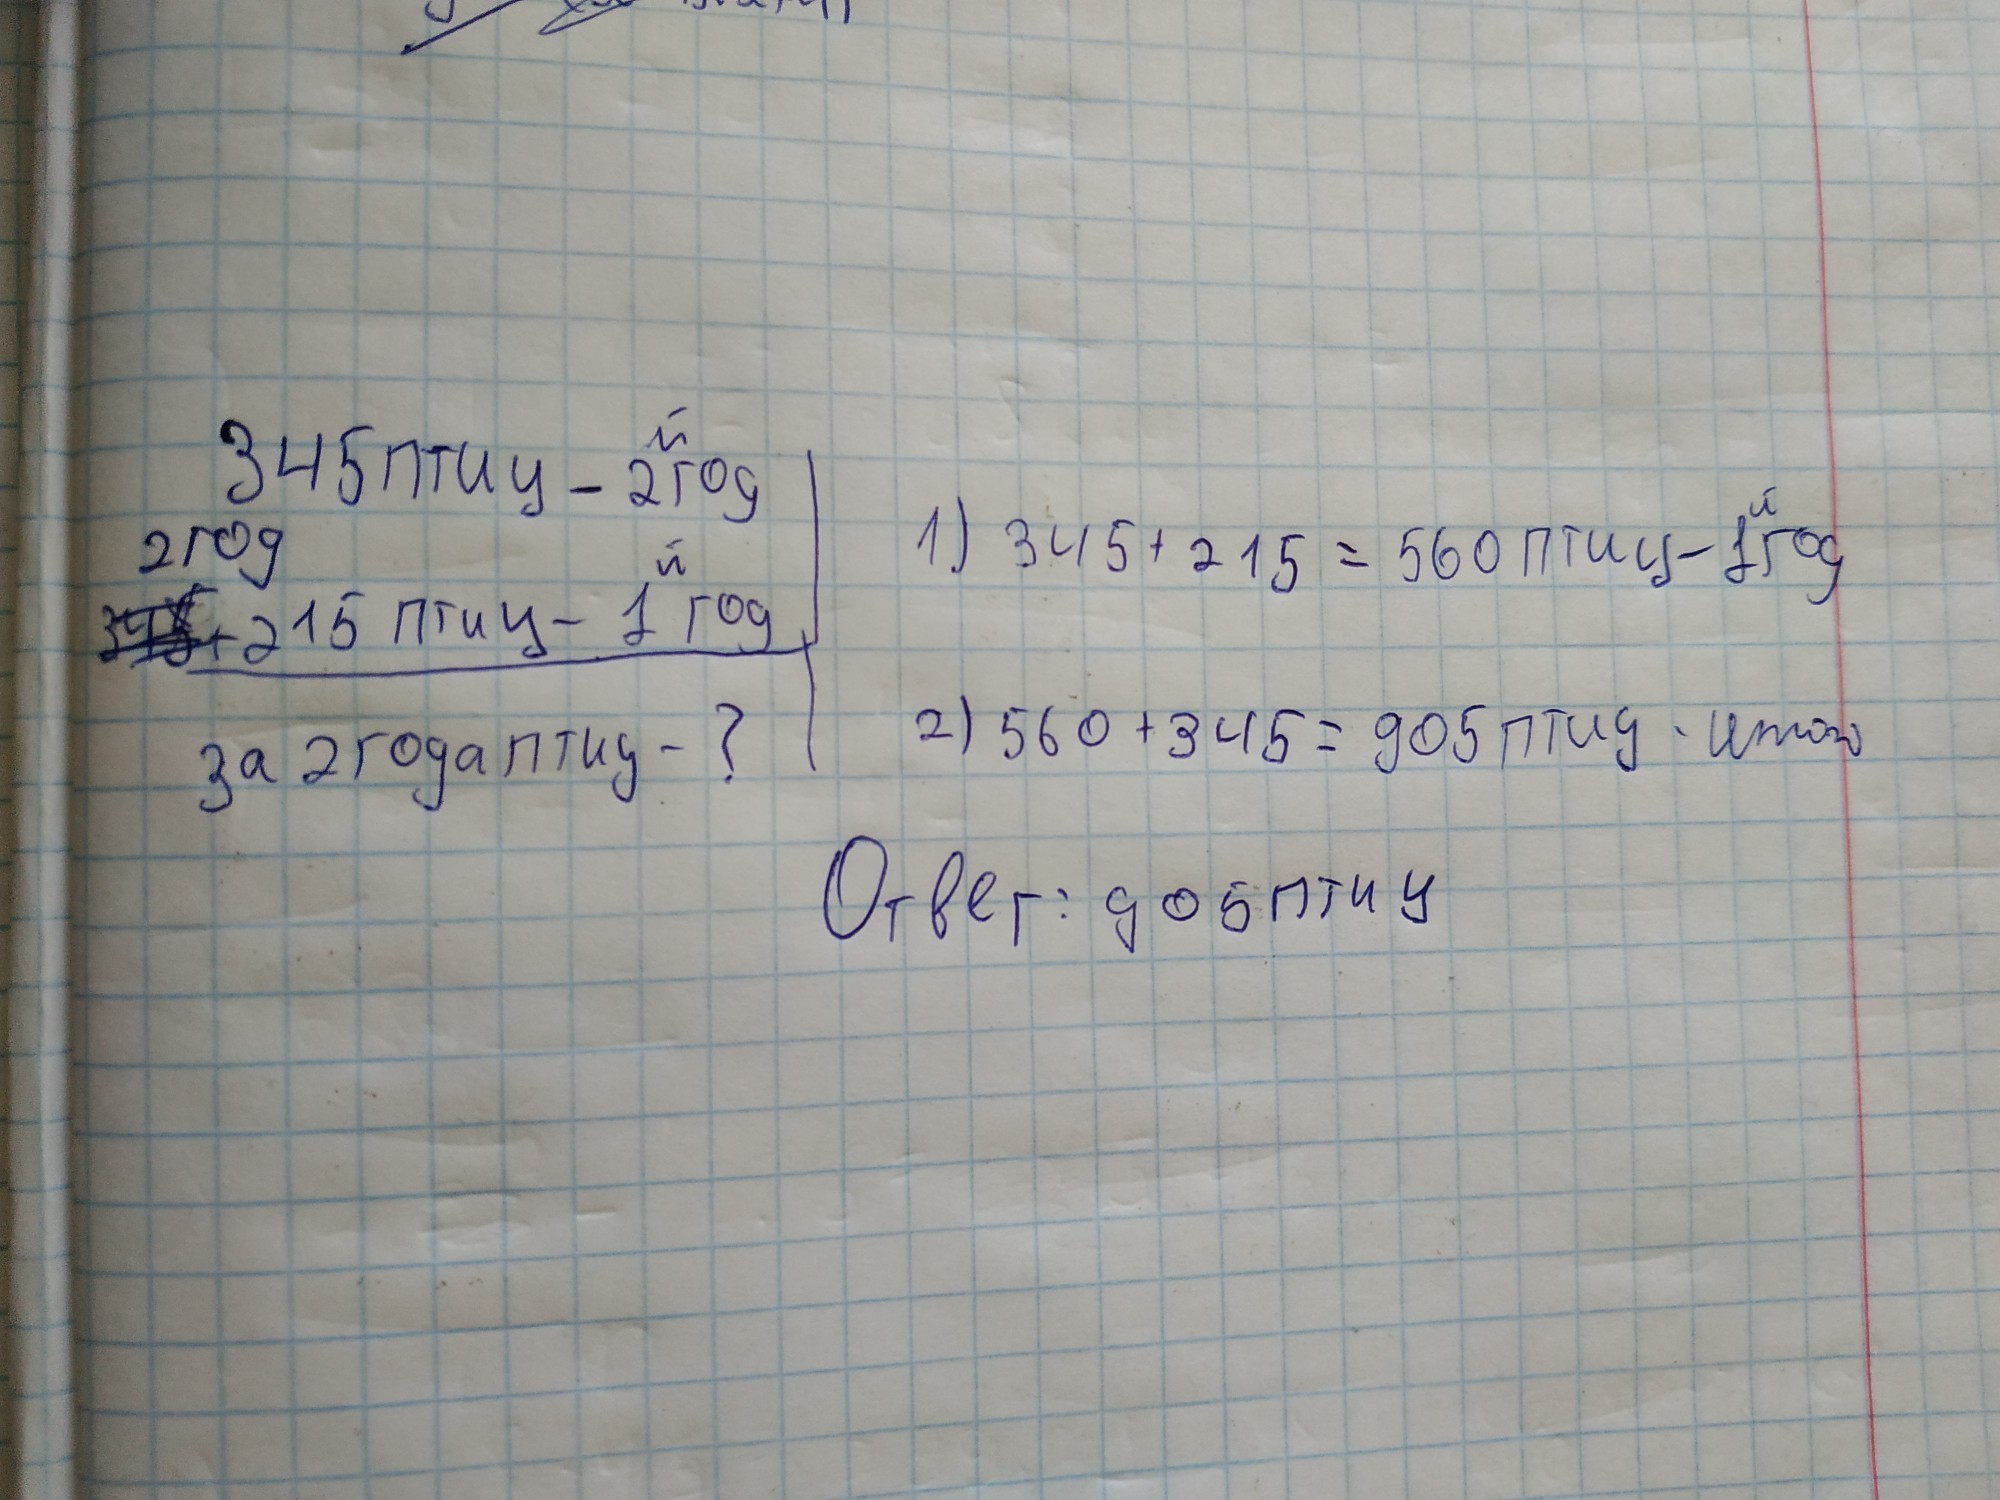 345 птиц - 2й год
2 год
+ 215 птиц - 1й год
за 2 года птиц - ?
1) 345 + 215 = 560 птиц - 1й год
2) 560 + 345 = 905 птиц - итого
Ответ: 905 птиц